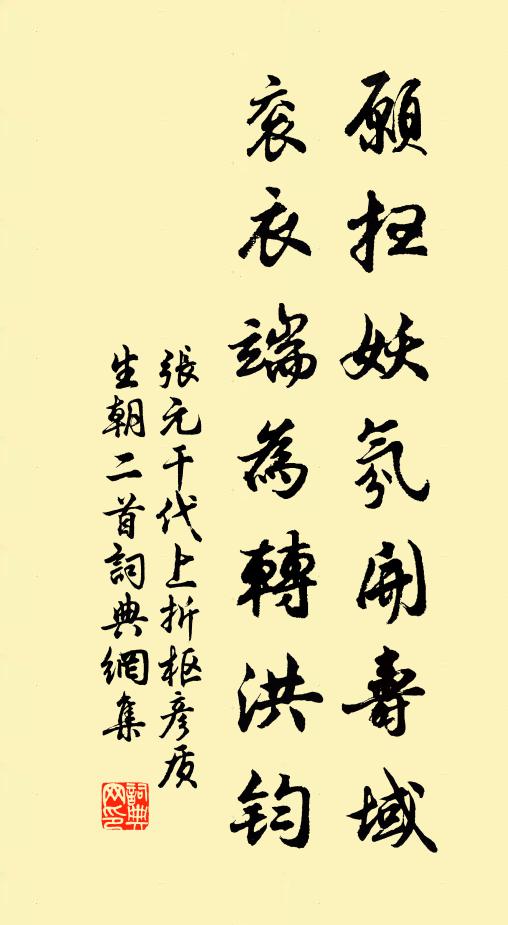 願扫妖氛開壽域
衮衣端為轉洪鈞
張元干代上折枢彦质
生朝二首詞典網集
詞典
网印